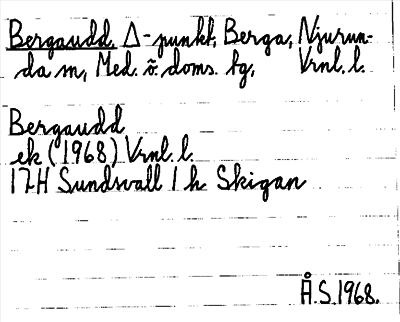 Bergaudd, Δ-punkt, Berga, Njurun-
da sn, Med. ö. doms. tg, Vrnl. l.
Bergaudd
ek (1968) Vrnl. l.
17H Sundsvall 1 h Skigan
Å.S. 1968.